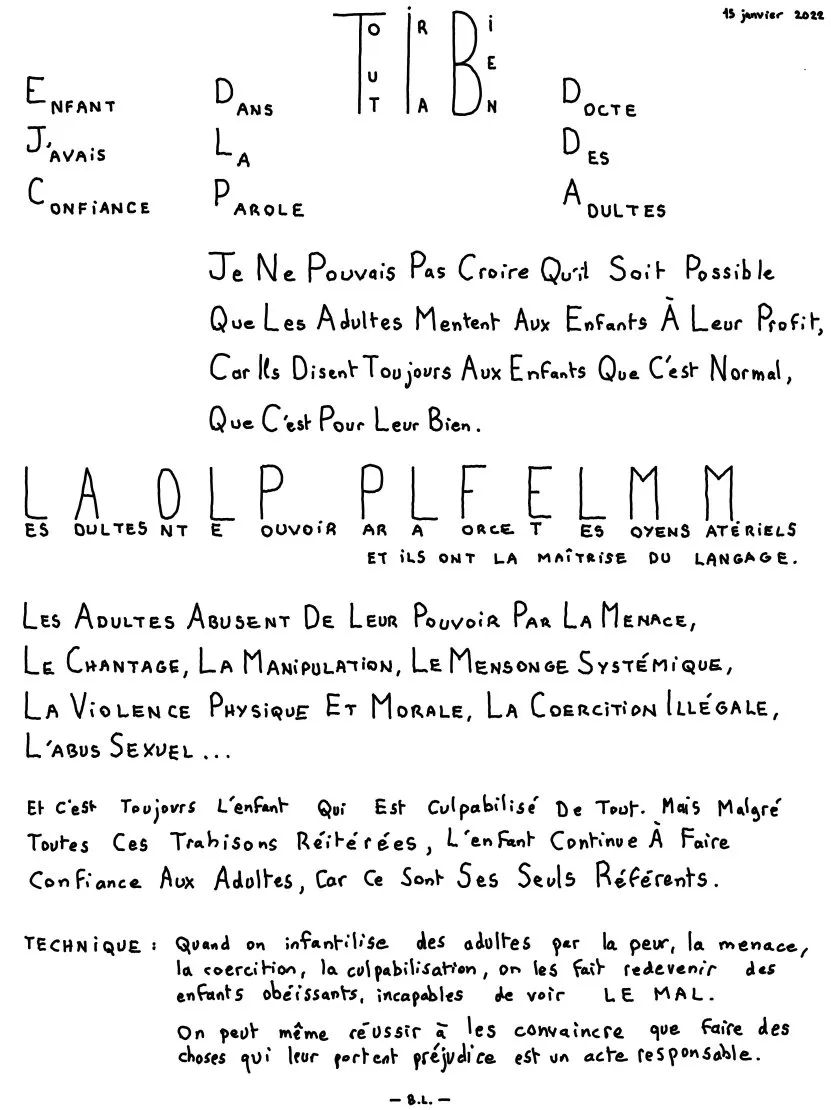 15 janvier 2022
TOUT IRA BIEN
ENFANT DANS DOCTE
J'AVAIS LA DES
CONFIANCE PAROLE ADULTES
Je Ne Pouvais Pas Croire Qu'il Soit Possible
Que Les Adultes Mentent Aux Enfants À Leur Profit,
Car Ils Disent Toujours Aux Enfants Que C'est Normal,
Que C'est Pour Leur Bien.
LES ADULTES ONT LE POUVOIR PAR LA FORCE ET LES MOYENS MATÉRIELS
ET ILS ONT LA MAÎTRISE DU LANGAGE.
LES ADULTES ABUSENT DE LEUR POUVOIR PAR LA MENACE,
LE CHANTAGE, LA MANIPULATION, LE MENSONGE SYSTÉMIQUE,
LA VIOLENCE PHYSIQUE ET MORALE, LA COERCITION ILLÉGALE,
L'ABUS SEXUEL ...
Et C'est Toujours L'enfant Qui Est Culpabilisé De Tout. Mais Malgré
Toutes Ces Trahisons Réitérées, L'enfant Continue À Faire
Confiance Aux Adultes, Car Ce Sont Ses Seuls Référents.
TECHNIQUE : Quand on infantilise des adultes par la peur, la menace,
la coercition, la culpabilisation, on les fait redevenir des
enfants obéissants, incapables de voir LE MAL.
On peut même réussir à les convaincre que faire des
choses qui leur portent préjudice est un acte responsable.
— B.L. —